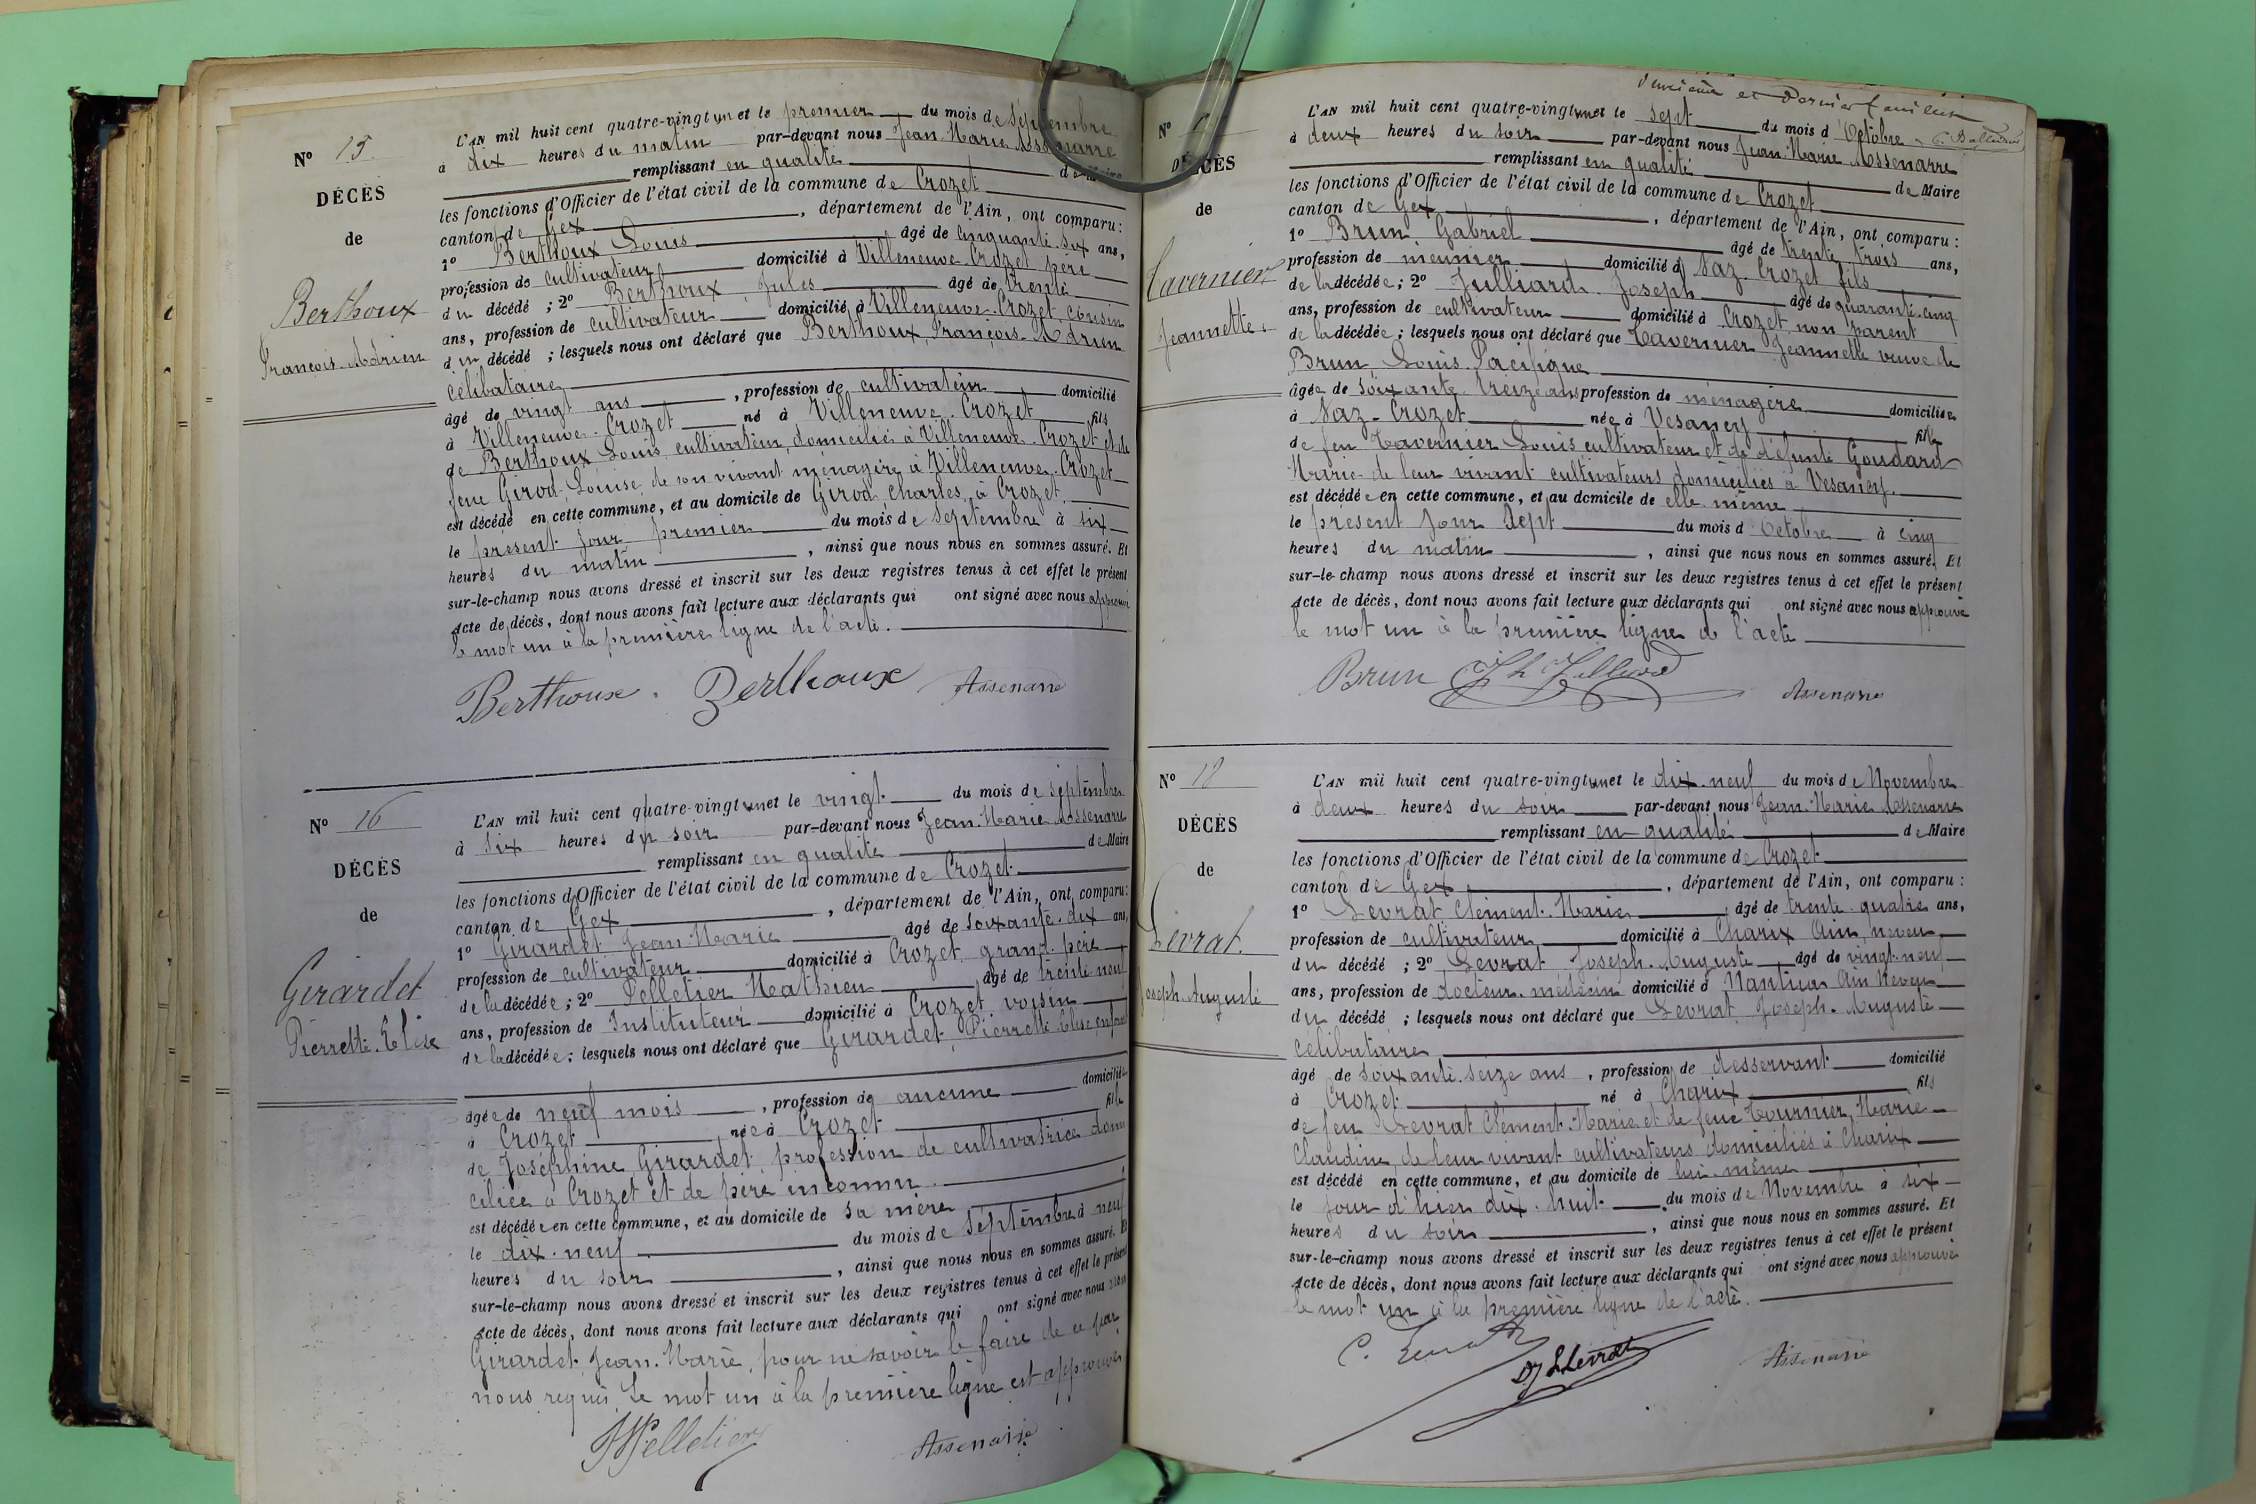 Nº 15
DÉCÈS
de
Berthoux
François-Adrien
L'AN mil huit cent quatre-vingt un et le premier du mois de Septembre
à dix heures du matin par-devant nous Jean-Marie Assenarre
remplissant en qualité de Maire
les fonctions d'Officier de l'état civil de la commune de Crozet
canton de Gex, département de l'Ain, ont comparu :
1º Berthoux Louis âgé de cinquante-six ans,
profession de cultivateur domicilié à Villeneuve-Crozet père
du décédé ; 2º Berthoux Jules âgé de trente
ans, profession de cultivateur domicilié à Villeneuve-Crozet, cousin
du décédé ; lesquels nous ont déclaré que Berthoux, François-Adrien
célibataire
âgé de vingt ans, profession de cultivateur domicilié
à Villeneuve-Crozet né à Villeneuve-Crozet fils
de Berthoux Louis, cultivateur, domicilié à Villeneuve-Crozet et de
feue Girod Louise, de son vivant ménagère à Villeneuve-Crozet
est décédé en cette commune, et au domicile de Girod Charles, à Crozet,
le présent jour premier du mois de Septembre à six
heures du matin, ainsi que nous nous en sommes assuré. Et
sur-le-champ nous avons dressé et inscrit sur les deux registres tenus à cet effet le présent
Acte de décès, dont nous avons fait lecture aux déclarants qui ont signé avec nous approuvé
le mot un à la première ligne de l'acte.
Berthoux. Berthoux Assenarre
Nº 16
DÉCÈS
de
Girardet
Pierrette-Elise
L'AN mil huit cent quatre-vingt un et le vingt du mois de septembre
à six heures du soir par-devant nous Jean-Marie Assenarre
remplissant en qualité de Maire
les fonctions d'Officier de l'état civil de la commune de Crozet
canton de Gex, département de l'Ain, ont comparu :
1º Girardet Jean-Marie âgé de soixante-dix ans,
profession de cultivateur domicilié à Crozet, grand-père
de la décédée ; 2º Pelletier Mathieu âgé de trente neuf
ans, profession de Instituteur domicilié à Crozet, voisin
de la décédée ; lesquels nous ont déclaré que Girardet, Pierrette Elise, enfant
âgée de neuf mois, profession de aucune domiciliée
à Crozet née à Crozet fille
de Joséphine Girardet, profession de cultivatrice domi
ciliée à Crozet et de père inconnu.
est décédée en cette commune, et au domicile de sa mère
le dix-neuf du mois de Septembre à neuf
heures du soir, ainsi que nous nous en sommes assuré. Et
sur-le-champ nous avons dressé et inscrit sur les deux registres tenus à cet effet le présent
Acte de décès, dont nous avons fait lecture aux déclarants qui ont signé avec nous
Girardet Jean-Marie, pour ne savoir le faire de ce par
nous requis. Le mot un à la première ligne est approuvé
Pelletier Assenarre
et dernier feuillet
Nº
DÉCÈS
de
Tavernier
Jeannette.
L'AN mil huit cent quatre-vingt un et le sept du mois d'Octobre
à deux heures du soir par-devant nous Jean-Marie Assenarre
remplissant en qualité de Maire
les fonctions d'Officier de l'état civil de la commune de Crozet
canton de Gex, département de l'Ain, ont comparu :
1º Brun Gabriel âgé de trente trois ans,
profession de meunier domicilié à Naz-Crozet fils
de la décédée ; 2º Julliard Joseph âgé de quarante-cinq
ans, profession de cultivateur domicilié à Crozet non parent
de la décédée ; lesquels nous ont déclaré que Tavernier Jeannette veuve de
Brun Louis Pacifique
âgée de soixante treize ans profession de ménagère domiciliée
à Naz-Crozet née à Vesancy fille
de feu Tavernier Louis cultivateur et de défunte Goudard
Marie de leur vivant cultivateurs domiciliés à Vesancy.
est décédée en cette commune, et au domicile de elle même
le présent jour sept du mois d'Octobre à cinq
heures du matin, ainsi que nous nous en sommes assuré. Et
sur-le-champ nous avons dressé et inscrit sur les deux registres tenus à cet effet le présent
Acte de décès, dont nous avons fait lecture aux déclarants qui ont signé avec nous approuvé
le mot un à la première ligne de l'acte
Brun Jh Julliard Assenarre
Nº 18
DÉCÈS
de
Levrat
Joseph-Auguste
L'AN mil huit cent quatre-vingt un et le dix-neuf du mois de Novembre
à deux heures du soir par-devant nous Jean-Marie Assenarre
remplissant en qualité de Maire
les fonctions d'Officier de l'état civil de la commune de Crozet
canton de Gex, département de l'Ain, ont comparu :
1º Levrat Clément-Marie âgé de trente-quatre ans,
profession de cultivateur domicilié à Charix Ain, neveu
du décédé ; 2º Levrat Joseph-Auguste âgé de vingt-neuf
ans, profession de docteur-médecin domicilié à Nantua Ain Neveu
du décédé ; lesquels nous ont déclaré que Levrat Joseph-Auguste
célibataire
âgé de soixante-seize ans, profession de desservant domicilié
à Crozet né à Charix fils
de feu Levrat Clément-Marie et de feue Tournier Marie
Claudine, de leur vivant cultivateurs domiciliés à Charix
est décédé en cette commune, et au domicile de lui-même
le jour d'hier dix-huit du mois de Novembre à six
heures du soir, ainsi que nous nous en sommes assuré. Et
sur-le-champ nous avons dressé et inscrit sur les deux registres tenus à cet effet le présent
Acte de décès, dont nous avons fait lecture aux déclarants qui ont signé avec nous approuvé
le mot un à la première ligne de l'acte.
C. Levrat Dr J Levrat Assenarre